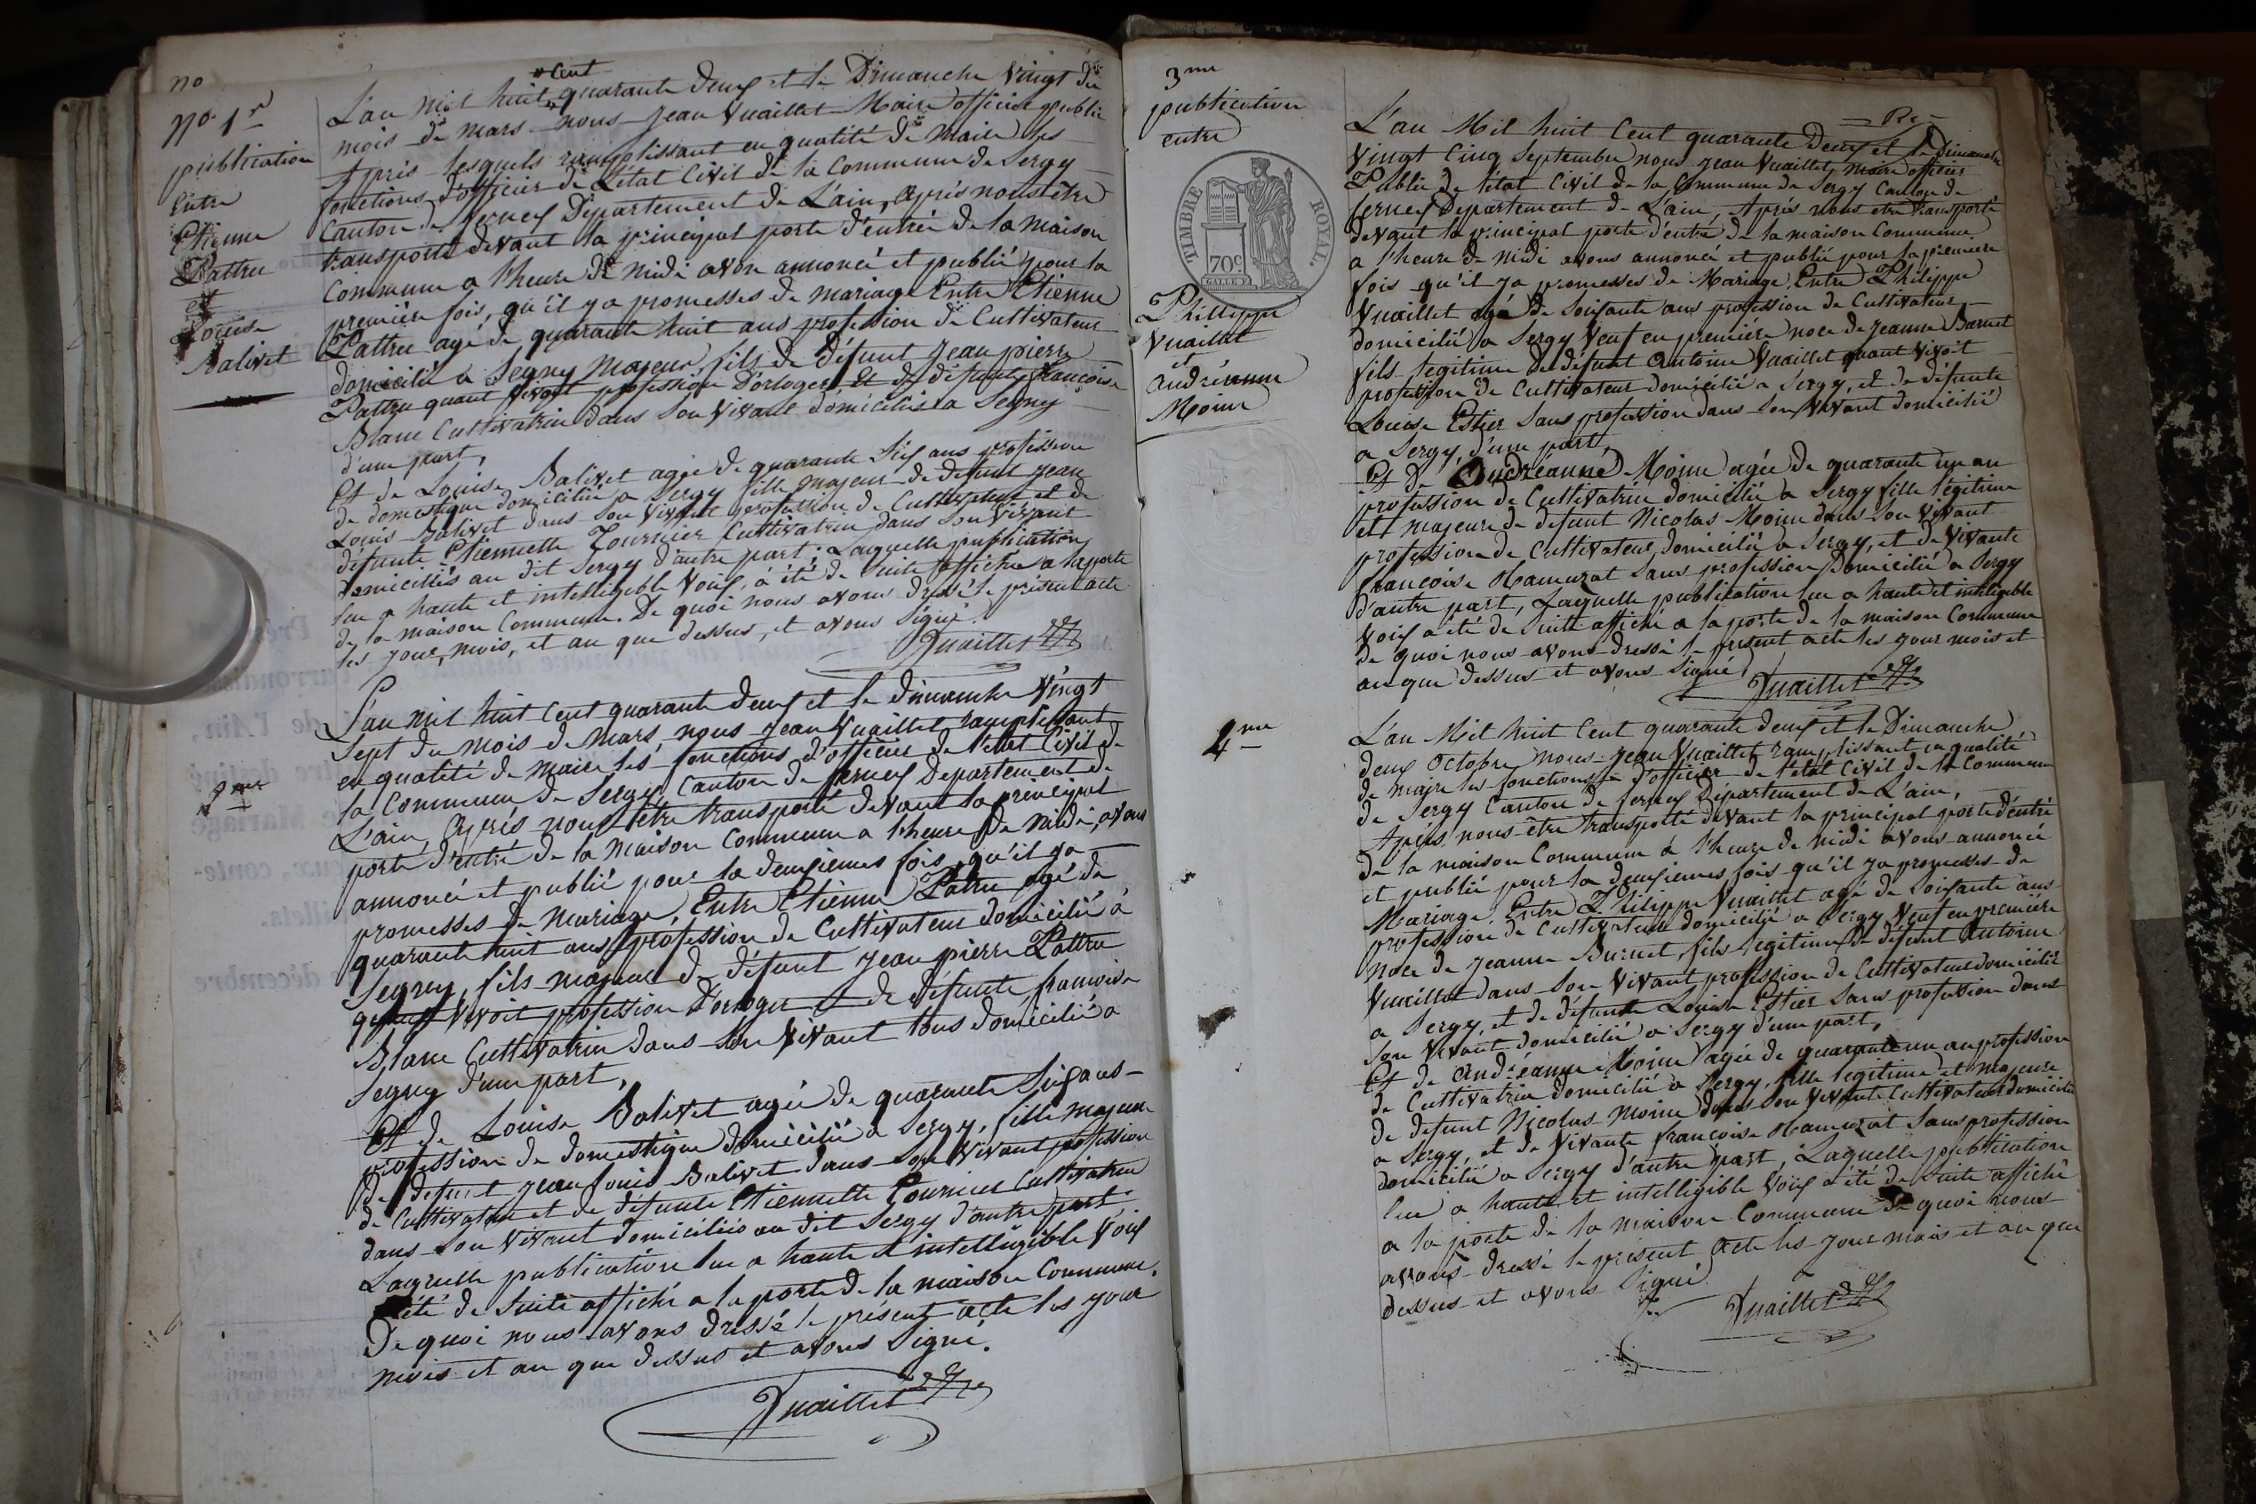 no
no 1er
publication
Entre
Etienne
Pattru
et
Louise
Balivet
L'an mil huit cent quarante deux et le Dimanche Vingt du
mois de mars nous Jean Vuaillet Maire officier public
Après lesquels remplissant en qualité de maire les
fonctions d'officier de L'état Civil de la Commune de Sergy
Canton de fernex Département de L'ain, Après nous être
transporté devant la principal porte d'entrée de la maison
Commune a l'heure de midi avon annoncé et publié pour la
première fois, qu'il ya promesses de mariage Entre Etienne
Pattru agé de quarante huit ans profession de Cultivateur
domicilié a Segny Majeur fils de défunt Jean pierre
Pattru quant vivoit profession D'orloger Et de défunte françoise
Blanc Cultivatrice dans son Vivant domiciliés a Segny
d'une part,
Et de Louise Balivet agée de quarante Six ans profession
de domestique domiciliée a Sergy fille majeur de défunt Jean
Louis Balivet dans son Vivant profession de Cultivateur et de
défunte Etiennette Fournier Cultivatrice dans son Vivant
domiciliés au dit Sergy d'autre part. Laquelle publication
lue a haute et intelligible Voix, a été de suite affiché a la porte
de la maison Commune. De quoi nous avons Dressé le présent acte
les jour, mois, et an que dessus, et avons Signé.
Vuaillet
2me
L'an mil huit Cent quarante deux et le dimanche Vingt
Sept du mois de Mars, nous Jean Vuaillet remplissant
en qualité de maire les fonctions d'officier de l'état Civil de
la Commune de Sergy Canton de fernex Département de
L'ain, Après nous être transporté devant la principal
porte d'entré de la Maison Commune a l'heure de midi, avons
annoncé et publié pour la deuxiemes fois, qu'il ya
promesses de Mariage, Entre Etienne Patru agé de
quarante huit ans profession de Cultivateur domicilié à
Segny, fils majeur de défunt Jean pierre Pattru
quant vivoit profession D'orloger et de défunte francoise
Blanc Cultivatrice dans son Vivant tous domicilié a
Segny d'une part,
Et de Louise Balivet agée de quarante Six ans
profession de domestique domicilié a Sergy, fille majeur
de défunt Jean Louis Balivet dans son Vivant profession
de Cultivateur et de défunte Etiennette Fournier Cultivatrice
dans son Vivant domiciliés au dit Sergy d'autre part.
Laquelle publication lue a haute et intelligible Voix
a été de suite affiché a la porte de la maison Commune.
De quoi nous avons dressé le présent acte les jour
mois et an que dessus et avons Signé.
Vuaillet
3me
publication
entre
TIMBRE ROYAL.
70c
Philippe
Vuaillet
et
Andréanne
Moine
L'an Mil huit Cent quarante Deux et le Dimanche
Vingt Cinq Septembre nous Jean Vuaillet, maire officier
Public de l'état Civil de la Commune de Sergy Canton de
fernex Département de L'ain, Après nous etre transporté
devant la principal porte d'entré de la maison Commune
a l'heure de midi avons annoncé et publié pour la premiere
fois qu'il ya promesses de Mariage, Entre Philippe
Vuaillet agé de Soixante ans profession de Cultivateur
domicilié a Sergy Veuf en première noce de Jeanne Burnet
fils légitime de défunt Antoine Vuaillet quant Vivoit
profession de Cultivateur domicilié a Sergy, et de défunte
Louise Estier Sans profession dans son Vivant domicilié
a Sergy, d'une part,
Et de Andréanne Moine agée de quarante un an
profession de Cultivatrice domicilié a Sergy fille légitime
et majeure de défunt Nicolas Moine dans son Vivant
profession de Cultivateur, domicilié a Sergy, et de Vivante
françoise Hamurat Sans profession domicilié a Sergy
d'autre part, Laquelle publication lue a haute et intelligible
Voix a été de Suite affiché a la porte de la maison Commune
de quoi nous avons dressé le présent acte les jour mois et
an que dessus et avons Signé
Vuaillet
4me
L'an Mil huit Cent quarante deux et le Dimanche
deux Octobre nous Jean Vuaillet remplissant en qualité
de maire les fonctions d'officier de l'état Civil de la Commune
de Sergy Canton de fernex Département de L'ain,
Après nous être transporté devant la principal porte d'entré
de la maison Commune à l'heure de midi avons annoncé
et publié pour la deuxiemes fois qu'il ya promesses de
Mariage. Entre Philippe Vuaillet agé de Soixante ans
profession de Cultivateur domicilié a Sergy Veuf en première
noce de Jeanne Burnet, fils légitime de défunt Antoine
Vuaillet dans son Vivant profession de Cultivateur domicilié
a Sergy, et de défunte Louise Estier Sans profession dans
Son Vivant domicilié a Sergy d'une part,
Et de Andréanne Moine agée de quarante un an profession
de Cultivatrice domicilié a Sergy, fille légitime et majeure
de défunt Nicolas Moine dans son Vivant Cultivateur domicilié
a Sergy, et de Vivante françoise Hamurat Sans profession
domicilié a Sergy d'autre part, Laquelle publication
lue a haute et intelligible Voix a été de Suite affiché
a la porte de la maison Commune de quoi nous
avons dressé le présent Acte les jour mois et an que
dessus et avons Signé
Vuaillet